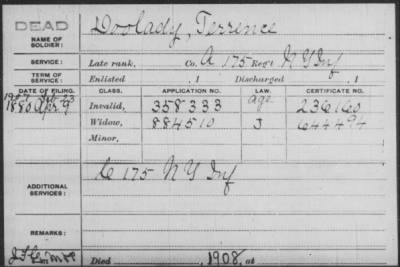 DEAD
NAME OF SOLDIER: Doolady, Terrence
SERVICE: Late rank, Co. A 175 Reg't N Y Inf
TERM OF SERVICE: Enlisted , 1 Discharged , 1
DATE OF FILING. CLASS. APPLICATION NO. LAW. CERTIFICATE NO.
1880 Apr 9 Invalid, 358333 age 236160
Widow, 884510 J 644494
Minor,
ADDITIONAL SERVICES: C 175 N Y Inf
REMARKS:
Died , 1908, at